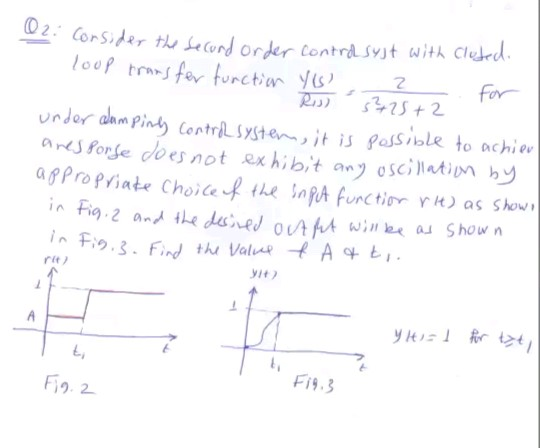 Q2: Consider the second order control syst with closed.
loop transfer function Y(s)/R(s) = 2/(s²+2s+2) . For
under damping control system, it is possible to achiev
a response does not exhibit any oscillation by
appropriate choice of the input function r(t) as show
in Fig.2 and the desired output will be as shown
in Fig.3. Find the value of A & t₁.
r(t)
1
A
t₁
t
Fig.2
y(t)
1
t₁
t
Fig.3
y(t)=1 for t≥t₁